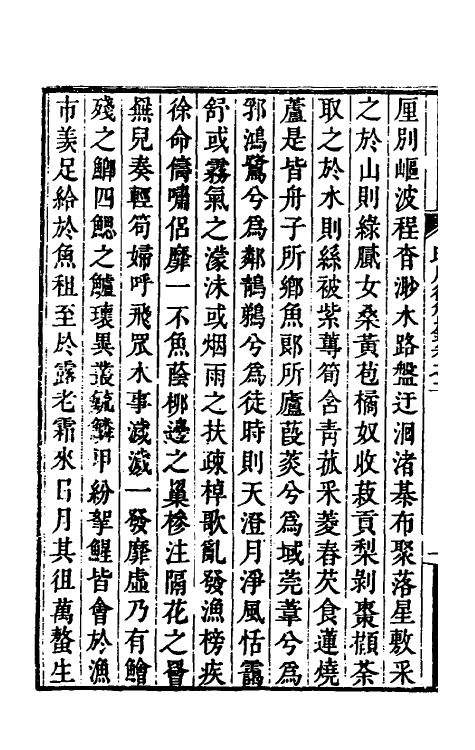 厘別嶇波程杳渺水路盤迂洄渚棊布聚落星敷采
之於山則綠膩女桑黃苞橘奴收菽貢梨剝棗擷茶
取之於水則絲被紫蓴筍含青菰采菱舂芡食蓮燒
蘆是皆舟子所鄉魚郎所廬葭菼兮爲域莞葦兮爲
郛鴻鷺兮爲鄰鶄鵜兮爲徒時則天澄月淨風恬靄
舒或霧氣之濛沬或烟雨之扶疎棹歌亂發漁榜疾
徐命儔嘯侶靡一不魚蔭栁邊之巢槮注隔花之罾
無兒奏輕笱婦呼飛罛水事㵒㵒一發靡虛乃有鱠
殘之鯽四鰓之鱸瓌異叢毓鱗甲紛挐鯹皆會於漁
市羙足給於魚租至於露老霜來月其徂萬螯生